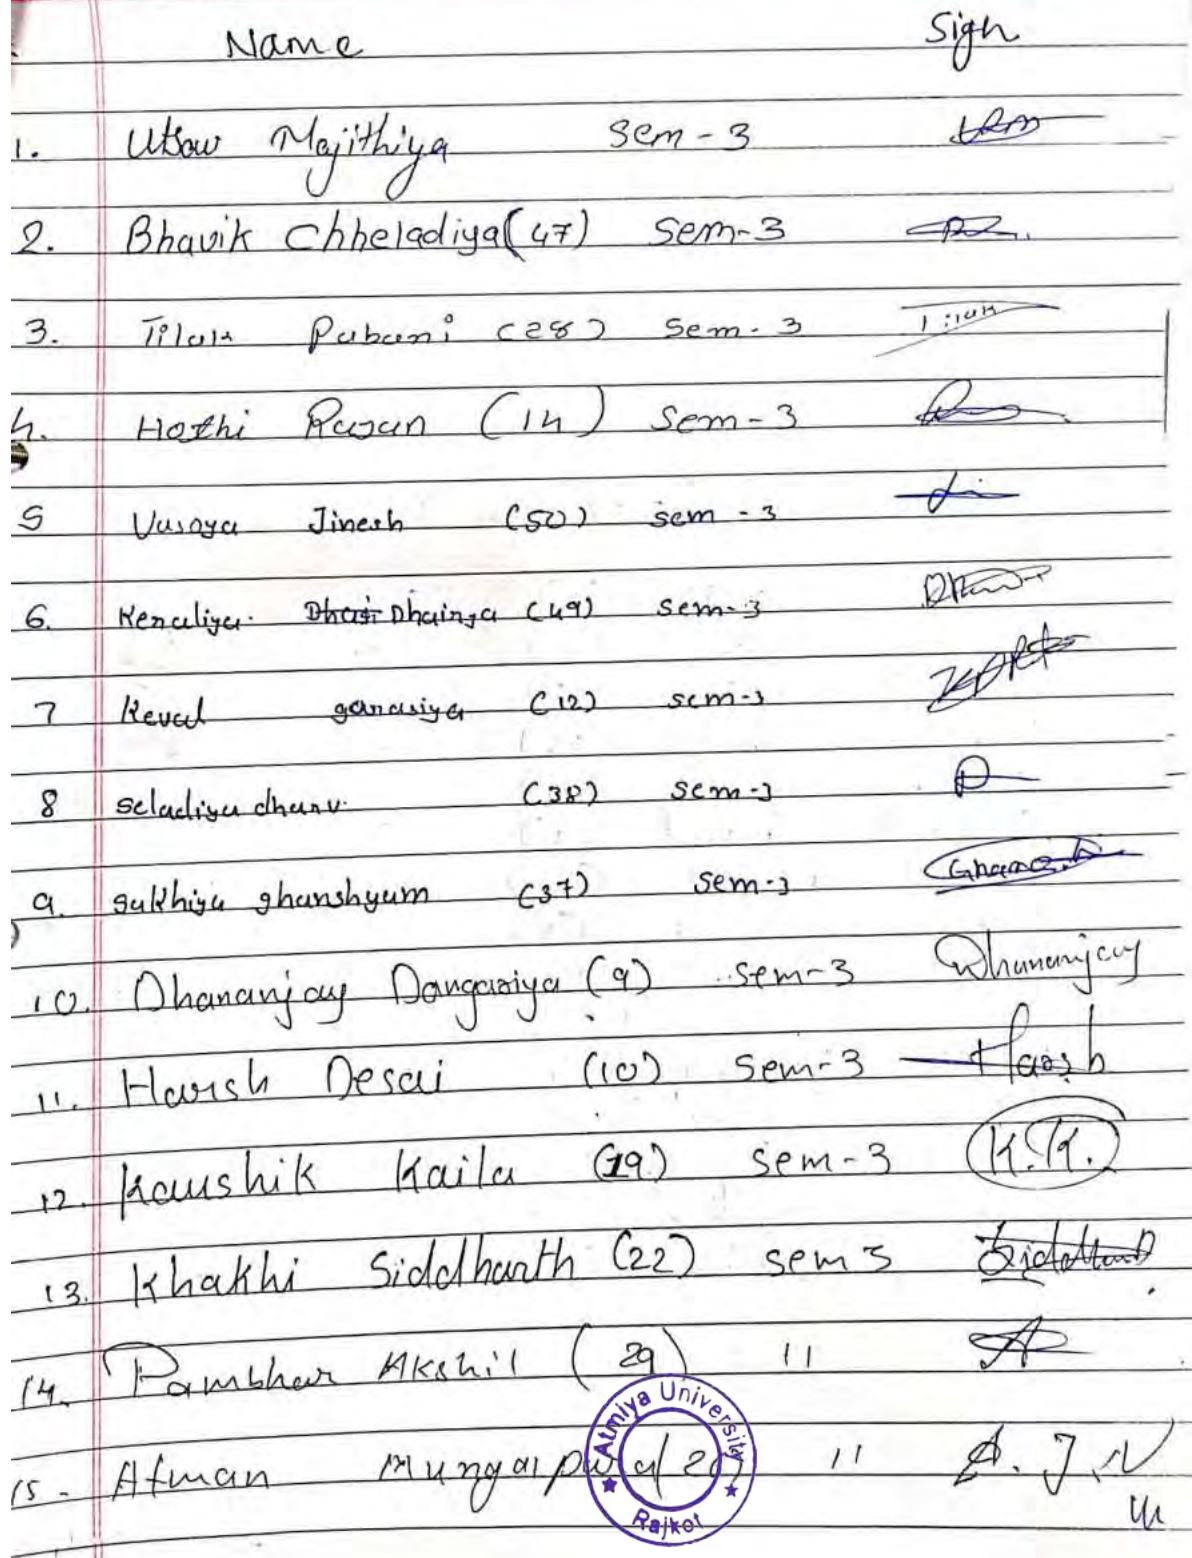 Name Sign
1. Utsav Majithiya Sem-3
2. Bhavik Chheladiya (47) Sem-3
3. Tilak Pabani (28) Sem-3 Tilak
4. Hothi Rajan (14) Sem-3
5 Vasoya Jinesh (50) sem-3
6. Dhairya (49) sem-3
7 Keval garasiya (12) sem-3
8 seladiya dharv. (38) sem-3
9. sukhiya ghanshyam (37) sem-3
10. Dhananjay Dangariya (9) sem-3 Dhananjay
11. Harsh Desai (10) Sem-3 Harsh
12. Kaushik Kaila (19) sem-3 K.K.
13. Khakhi Siddharth (22) sem 3
14. Pambhar Akshil (29) 11
15. Atman 11
Atmiya University
Rajkot